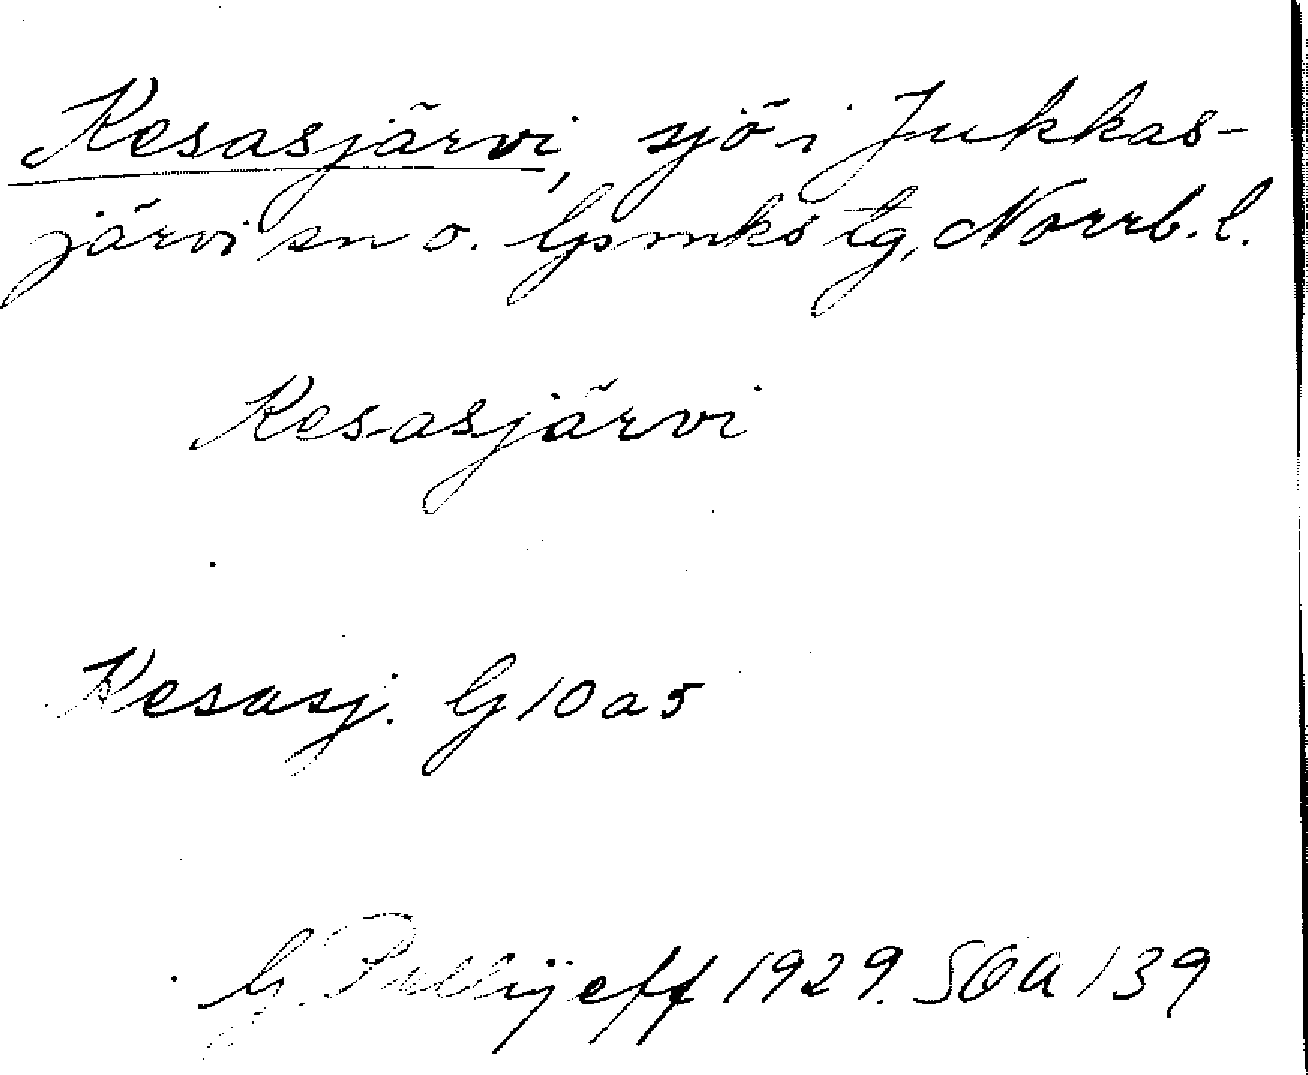 Kesasjärvi, sjö i Jukkas-
järvi sn o. Gsmks tg, Norrb. l.
Kesasjärvi
Kesasj. G 10 a 5
G. Pellijeff 1929. SOA 139